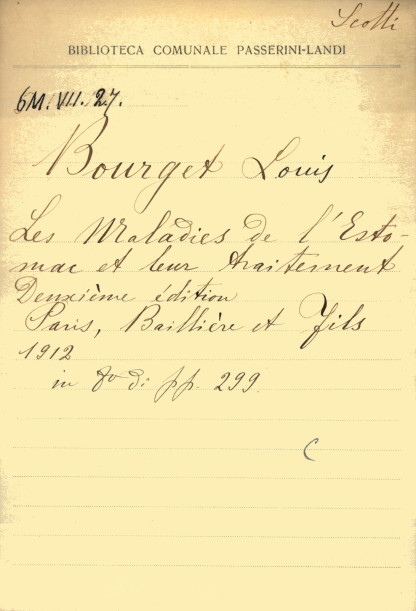 Scotti
BIBLIOTECA COMUNALE PASSERINI-LANDI
6M. VII. 27.
Bourget Louis
Les Maladies de l'Esto-
mac et leur traitement
Deuxième édition
Paris, Baillière et Fils
1912
in 8º di pp. 299
C